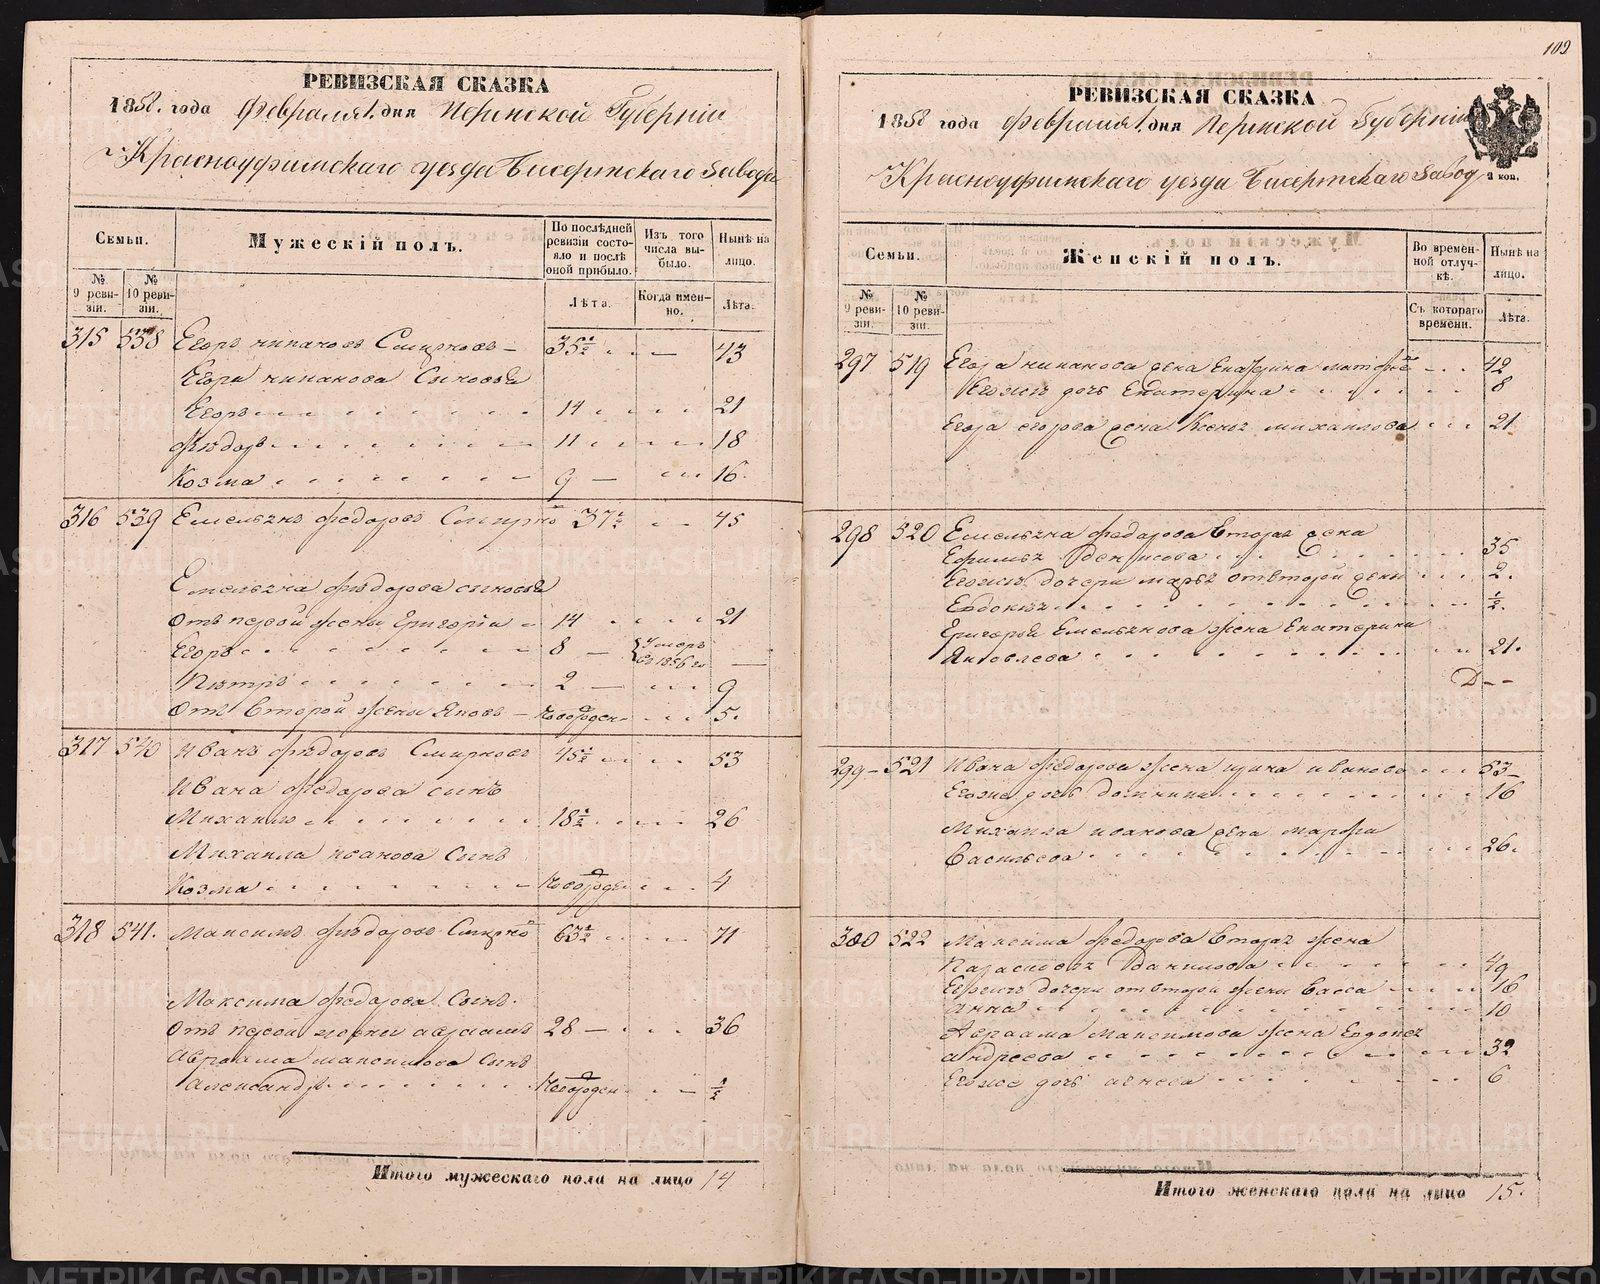 РЕВИЗСКАЯ СКАЗКА
1858. года Февраля 1. дня Пермской Губерніи
Красноуфимскаго уезда Бисертскаго Завода
Семьи.
№ 9 ревизіи.
№ 10 ревизіи.
Мужескій полъ.
По последней ревизіи состояло и послѣ оной прибыло.
Изъ того числа выбыло.
Нынѣ на лицо.
Лѣта.
Когда именно.
Лѣта.
315 538 Егоръ Смирновъ 35½ 43
Егора сыновья
Егоръ 14 21
Фёдоръ 11 18
Козма 9 16
316 539 Емельянъ Федоровъ Смирно 37½ 45
Емельяна Фёдорова сыновья
Отъ первой жены Григорій 14 21
Егоръ 8 Умеръ въ 1856 го
Пётръ 2 9
Отъ второй жены Яковъ новорожден 5.
317 540 Иванъ Фёдоровъ Смирновъ 45½ 53
Ивана Федорова сынъ
Михаилъ 18½ 26
Михаила Иванова сынъ
Козма новорожде 4
318 541. Максимъ Фёдоровъ Смирно 63½ 71
Максима Федорова сынъ.
Отъ первой жены Авраамъ 28 36
Авраама Максимова сынъ
Александръ новорожден ½
Итого мужескаго пола на лицо 14
102
РЕВИЗСКАЯ СКАЗКА
1858 года Февраля 1. дня Пермской Губерніи
Красноуфимскаго уезда Бисертскаго Завод
2 коп.
Семьи.
№ 9 ревизіи.
№ 10 ревизіи.
Женскій полъ.
Во временной отлучкѣ.
Нынѣ на лицо.
Съ котораго времени.
Лѣта.
297 519 Егора жена 42
Егожъ дочь Екатерина 8
Егора Егорова жена Ксенья Михаилова 21
298 520 Емельяна Федорова вторая жена
Денисова 35
Егожъ дочери Марья от второй жены 2.
Евдокья ½.
Григорья Емельянова жена Екатерина
Яковлева 21.
299 521 Ивана Федорова жена Ирина Иванова 53
Егоже дочь 16
Михаила Иванова жена Марфа
Васильева 26.
300 522 Максима Федорова вторая жена
Парасковья Данилова 49
Егожъ дочери от второй жены Васса 16
Анна 10
Авраама Максимова жена Евдокья
Андреева 32
Егоже дочь Агнеса 6
Итого женскаго пола на лицо 15.
METRIKI.GASO-URAL.RU